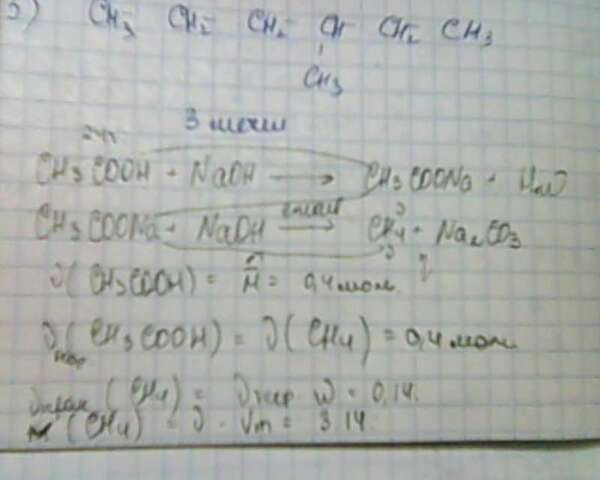 CH3 CH2 CH2 CH CH2 CH3
CH3
24г
CH3COOH + NaOH → CH3COONa + H2O
CH3COONa + NaOH → CH4 + Na2CO3
ν(CH3COOH) = m/M = 0,4 моль
ν(CH3COOH) = ν(CH4) = 0,4 моль
(CH4) = ν w = 0,14
(CH4) = ν · Vm = 3,14